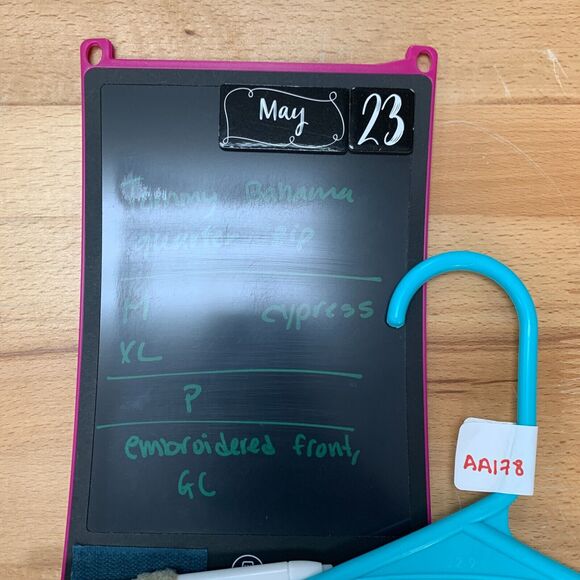 May 23
Tommy Bahama
quarter zip
M cypress
XL
P
embroidered front,
GC
AA178